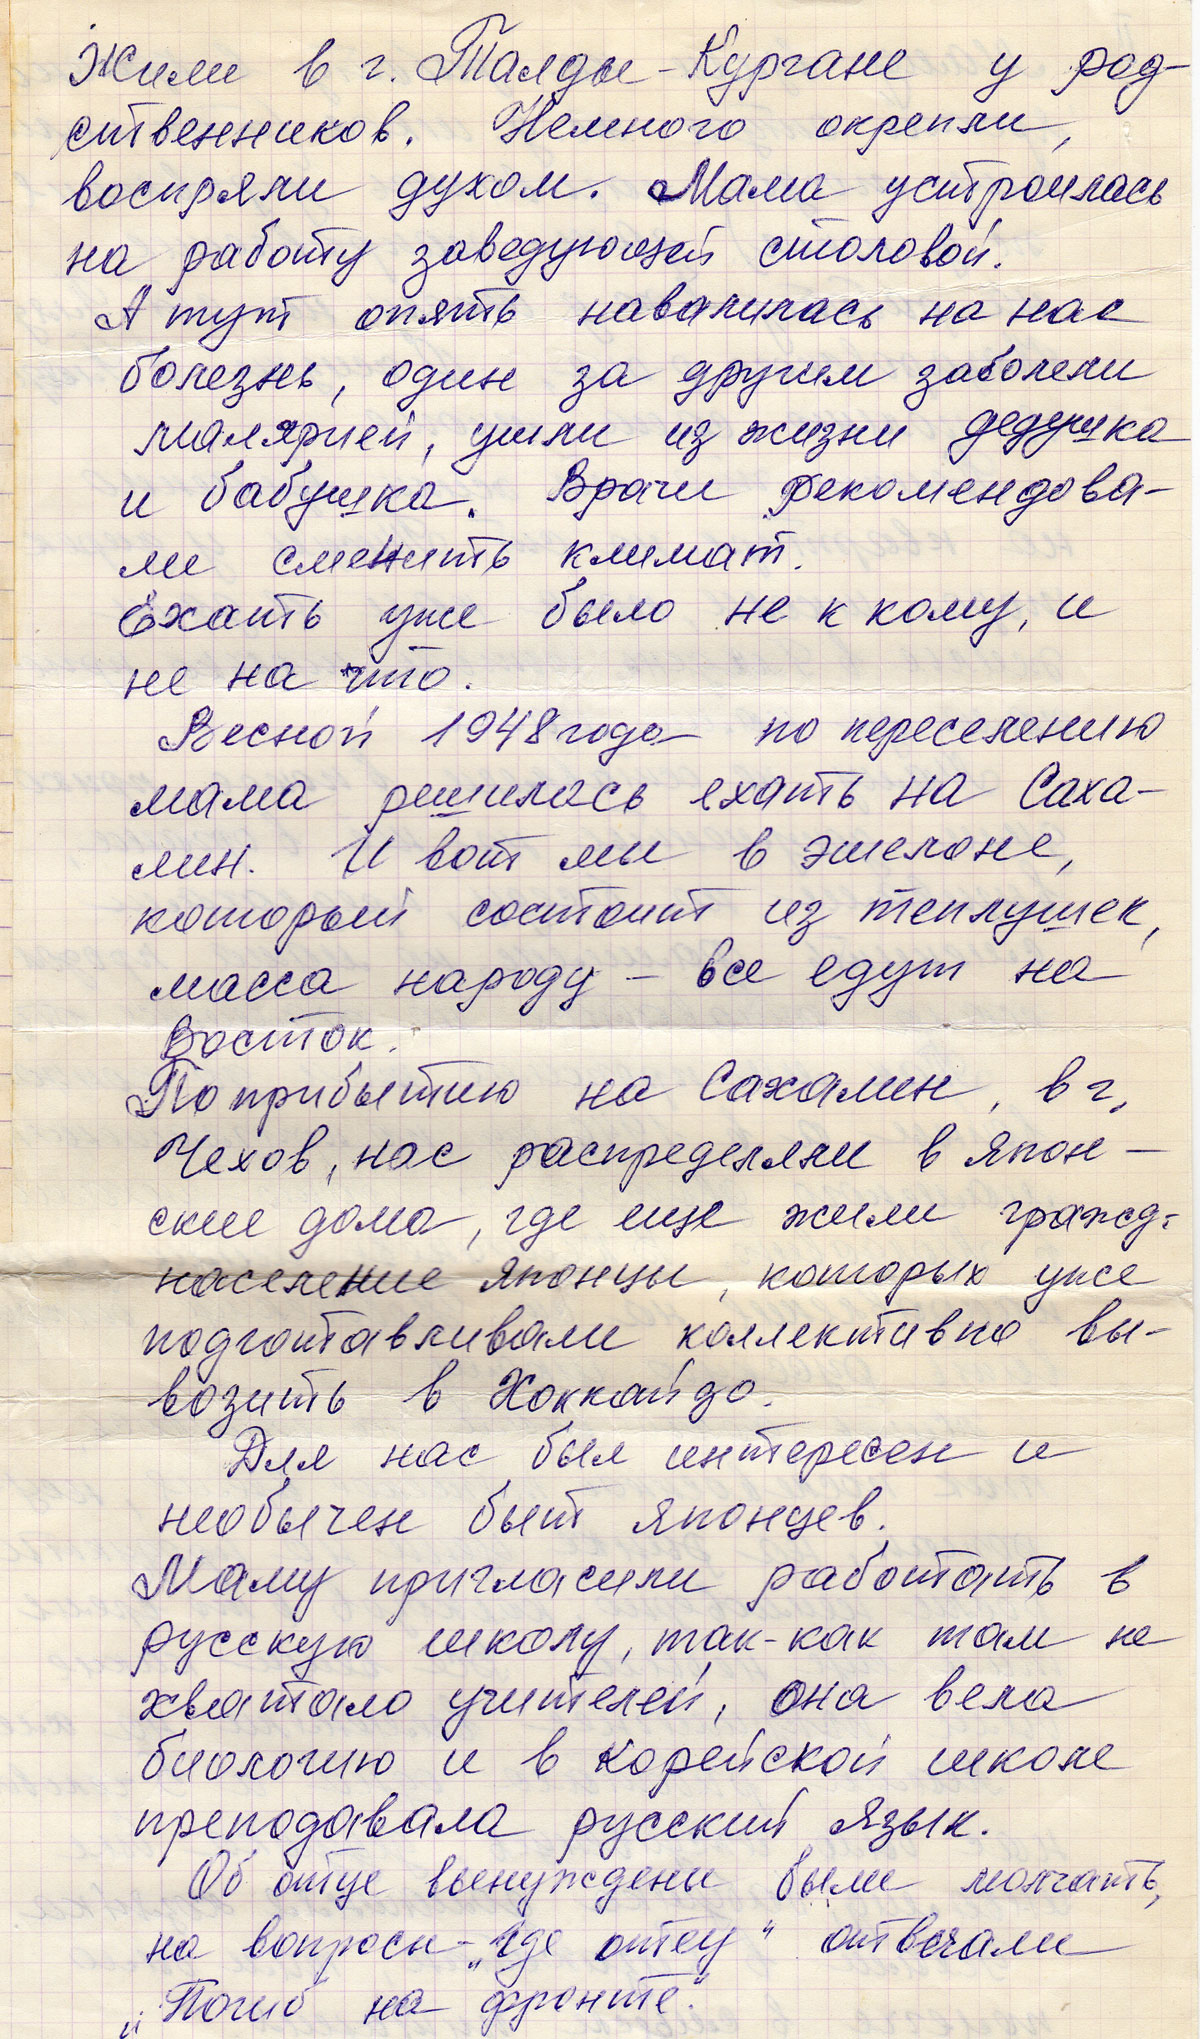 Жили в г. Талды-Кургане у род-
ственников. Немного окрепли,
воспряли духом. Мама устроилась
на работу заведующей столовой.
А тут опять навалилась на нас
болезнь, один за другим заболели
малярией, ушли из жизни дедушка
и бабушка. Врачи рекомендова-
ли сменить климат.
Ехать уже было не к кому, и
не на что.
Весной 1948 года по переселению
мама решилась ехать на Саха-
лин. И вот мы в эшелоне,
который состоит из теплушек,
масса народу – все едут на
Восток.
По прибытию на Сахалин, в г.
Чехов, нас распределяли в япон-
ские дома, где еще жили гражд-
население японцы, которых уже
подготавливали коллективно вы-
возить в Хоккайдо.
Для нас был интересен и
необычен быт японцев.
Маму пригласили работать в
русскую школу, так-как там не
хватало учителей, она вела
биологию и в Корейской школе
преподавала русский язык.
Об отце вынуждены были молчать,
на вопросы-„где отец" отвечали
„Погиб на фронте".